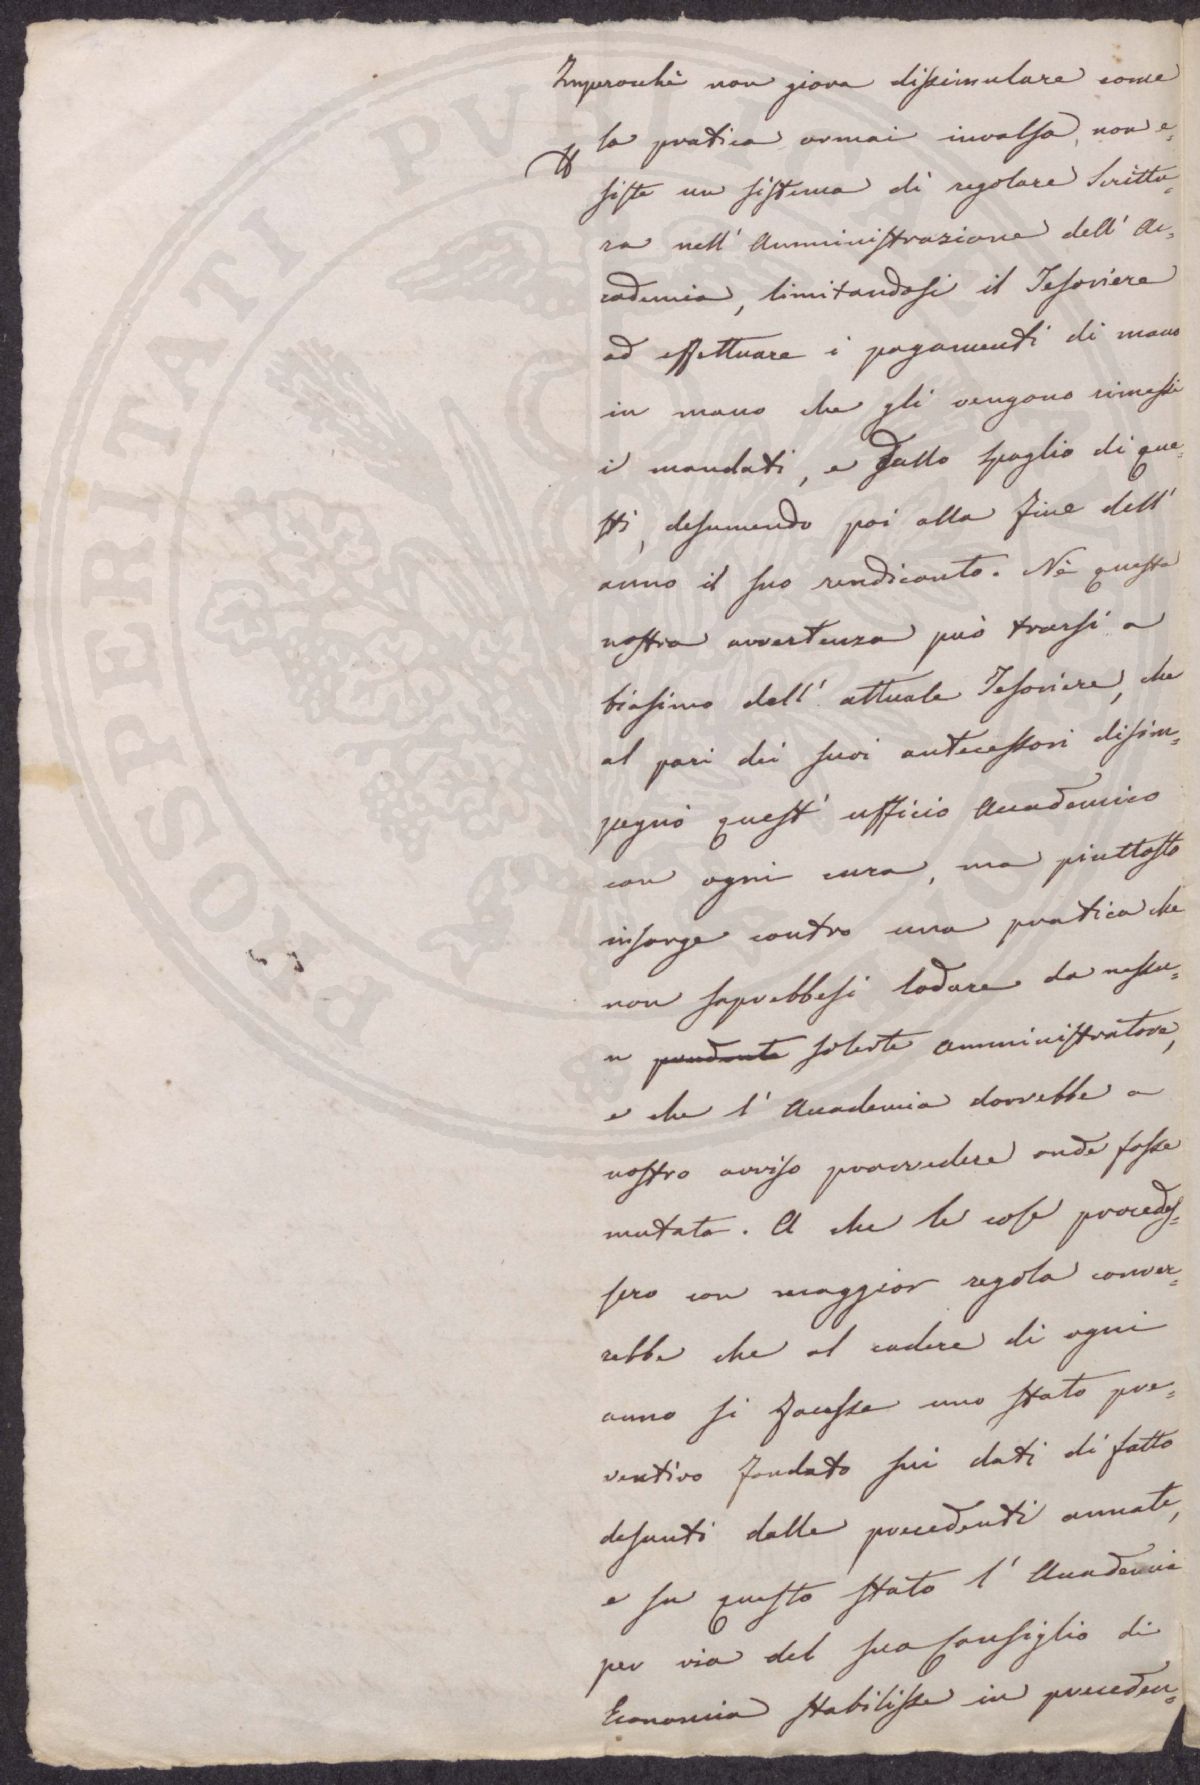 Imperocchè non giova dissimulare come
la pratica ormai invalsa, non e=
siste un sistema di regolare Scrittu=
ra nell' Amministrazione dell' Ac=
cademia, limitandosi il Tesoriere
ad effettuare i pagamenti di mano
in mano che gli vengono rimessi
i mandati, e dallo spoglio di que=
sti, desumendo poi alla fine dell'
anno il suo rendiconto. Nè questa
nostra avvertenza può trarsi a
biasimo dell' attuale Tesoriere, che
al pari dei suoi antecessori disim=
pegnò quest' ufficio Accademico
con ogni cura, ma piuttosto
insorge contro una pratica che
non saprebbesi lodare da nessu=
n prudente solerte amministratore,
e che l' Accademia dovrebbe a
nostro avviso provvedere onde fosse
mutata. A che le cose procedes=
sero con maggior regola conver=
rebbe che al cadere di ogni
anno si facesse uno stato pre=
ventivo fondato sui dati di fatto
desunti dalle precedenti annate,
e su questo stato l' Accademia
per via del suo Consiglio di
Economia stabilisse in preceden=
PROSPERITATI PUBLICAE